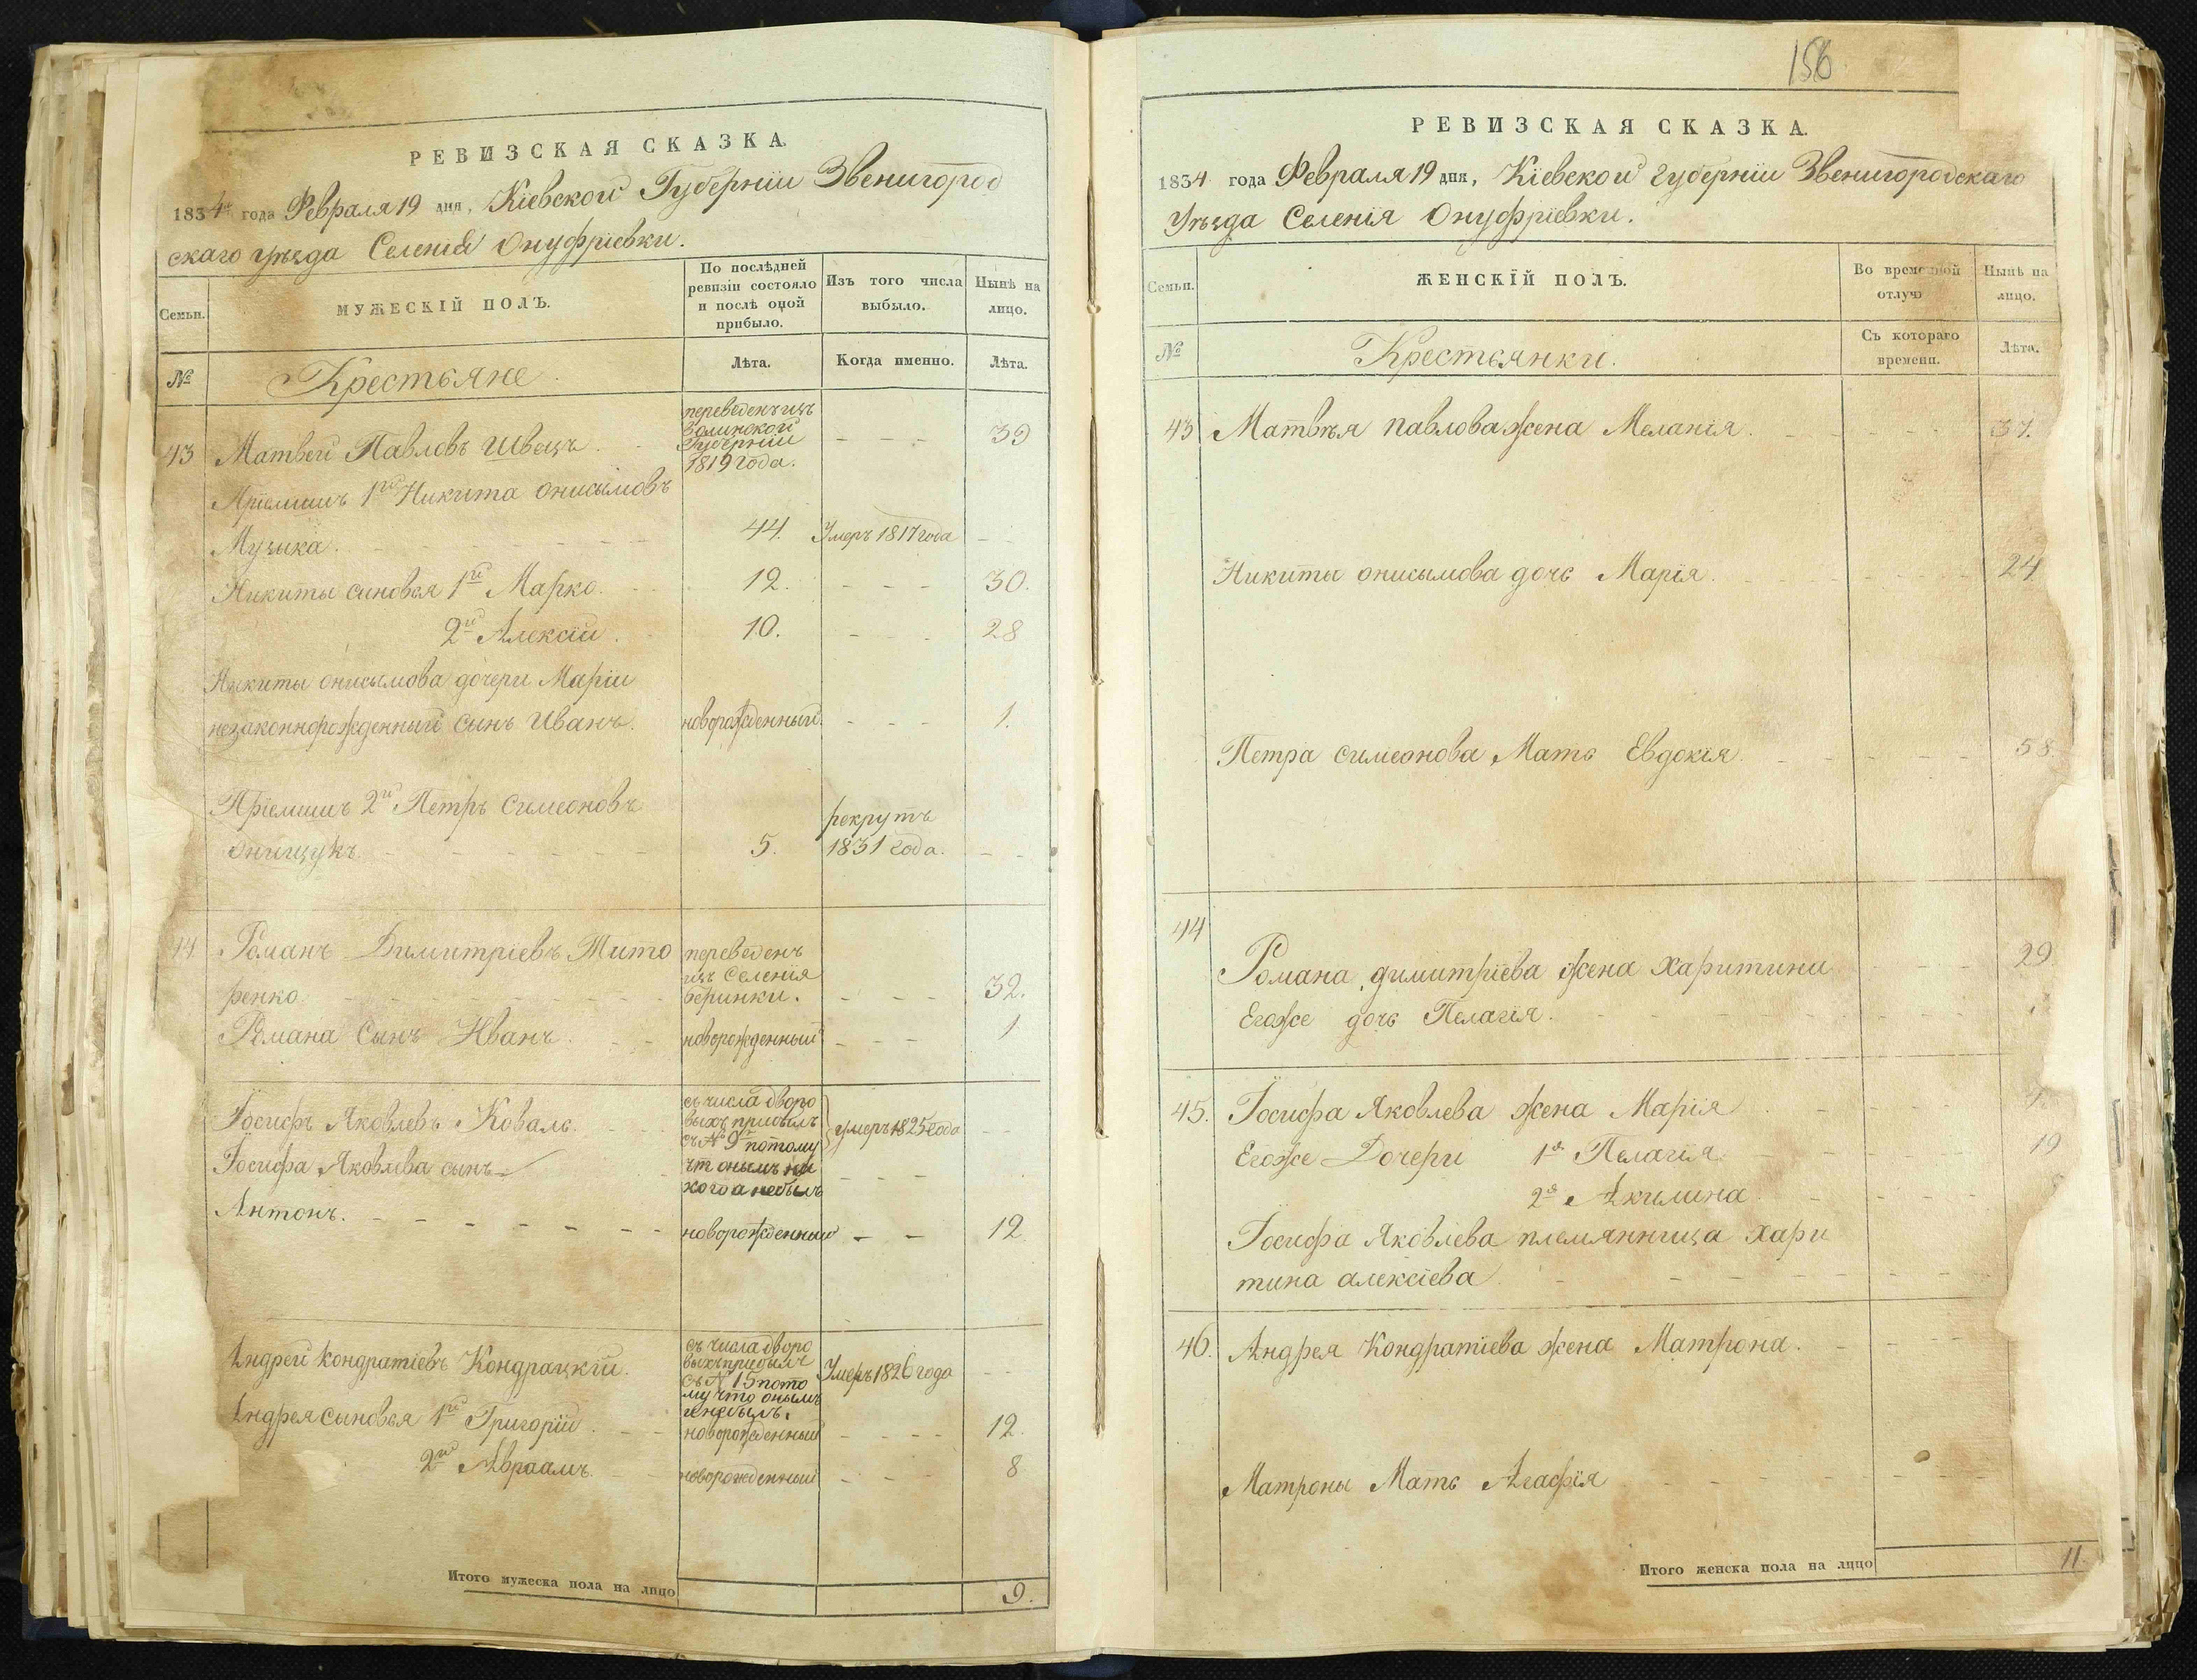 РЕВИЗСКАЯ СКАЗКА.
1834 года Февраля 19 дня, Кіевской Губерніи Звенигород
скаго уѣзда Селенія Онуфріевки.
Семьи.
МУЖЕСКІЙ ПОЛЪ.
По послѣдней
ревизіи состояло
и послѣ оной
прибыло.
Изъ того числа
выбыло.
Нынѣ на
лицо.
№
Крестьяне
Лѣта.
Когда именно.
Лѣта.
переведенъ изъ
Волинской
Губерніи
1819 года.
43 Матвей Павловъ Швецъ. - - - 39
Пріемишъ 1й Никита Онисимовъ
Музика. 44. Умеръ 1817 года - -
Никиты синовья 1й Марко. 12. - - - 30.
2й Алексій. 10. - - 28
Никиты онисимова дочери Маріи
незаконнорожденный синъ Иванъ. новорожденный. - - - 1.
Пріемишъ 2й Петръ Симеоновъ
рекрутъ
Онищукъ 5. 1831 года. - -
44 Романъ Димитріевъ Тито
ренко
переведенъ
изъ Селенія
беринки. - - - 32.
Романа Сынъ Иванъ. новорожденный - - - 1
Іосифъ Яковлевъ Коваль.
съ числа дворо
выхъ прибылъ
съ № 9 потому
умеръ 1825 года - -
Іосифа Яковлева сынъ
Антонъ. новорожденный - - 12.
Андрей Кондратіевъ Кондрацкій.
съ числа дворо
выхъ прибылъ
съ № 15 пото
му что онымъ
Умеръ 1826 года - -
Андрея синовья 1й Григорій. новорожденный - - - - 12.
2й Авраамъ новорожденный - - - 8
Итого мужеска пола на лицо 9.
156
РЕВИЗСКАЯ СКАЗКА.
1834 года Февраля 19 дня, Кіевской губерніи Звенигородскаго
Уѣзда Селенія Онуфріевки.
Семьи.
ЖЕНСКІЙ ПОЛЪ.
Во временной
отлуч
Нынѣ на
лицо.
№
Крестьянки.
Съ котораго
времени.
Лѣта.
43 Матвѣя Павлова жена Меланія. 37.
Никиты онисымова дочь Марія. 24
Петра Симеонова Мать Евдокія. 58
44
Романа димитріева жена Харитина 29
Егоже дочь Пелагія.
45. Іосифа Яковлева жена Марія
Егоже Дочери 1я Пелагія. 19
2я Акилина
Іосифа Яковлева племянница Хари
тина алексіева
46. Андрея Кондратіева жена Матрона.
Матроны Мать Агафія
Итого женска пола на лицо 11.